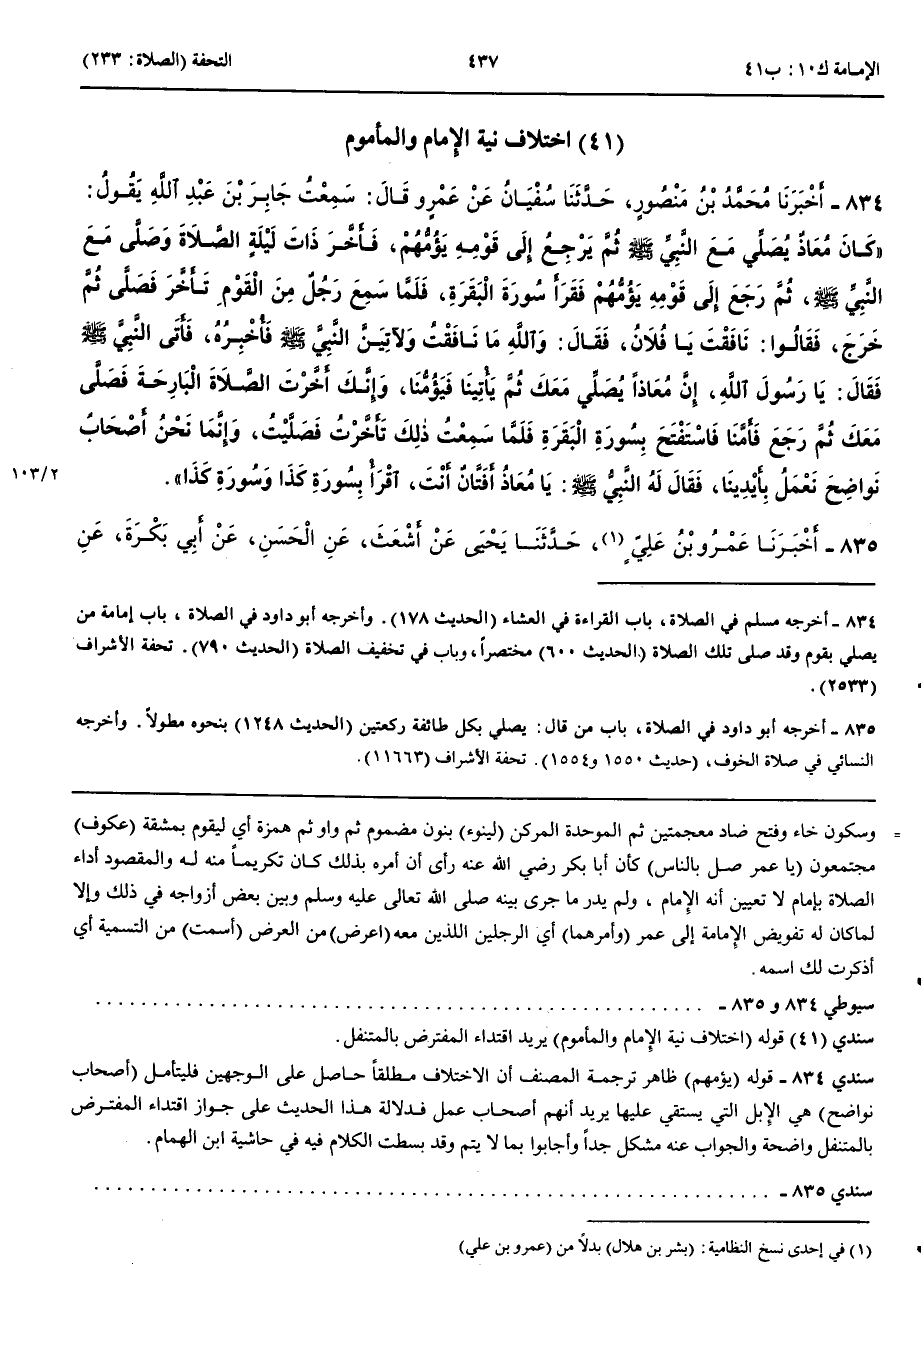 الإمامة ك١٠: ب٤١
٤٣٧
التحفة (الصلاة: ٢٣٣)
(٤١) اختلاف نية الإمام والمأموم
٨٣٤ - أَخْبَرَنَا مُحَمَّدُ بْنُ مَنْصُورٍ، حَدَّثَنَا سُفْيَانُ عَنْ عَمْرٍو قَالَ: سَمِعْتُ جَابِرَ بْنَ عَبْدِ اللَّهِ يَقُولُ:
«كَانَ مُعَاذٌ يُصَلِّي مَعَ النَّبِيِّ ﷺ ثُمَّ يَرْجِعُ إِلَى قَوْمِهِ يَؤُمُّهُمْ، فَأَخَّرَ ذَاتَ لَيْلَةٍ الصَّلَاةَ وَصَلَّى مَعَ
النَّبِيِّ ﷺ، ثُمَّ رَجَعَ إِلَى قَوْمِهِ يَؤُمُّهُمْ فَقَرَأَ سُورَةَ الْبَقَرَةِ، فَلَمَّا سَمِعَ رَجُلٌ مِنَ الْقَوْمِ تَأَخَّرَ فَصَلَّى ثُمَّ
خَرَجَ، فَقَالُوا: نَافَقْتَ يَا فُلَانُ، فَقَالَ: وَاللَّهِ مَا نَافَقْتُ وَلَآتِيَنَّ النَّبِيَّ ﷺ فَأُخْبِرُهُ، فَأَتَى النَّبِيَّ ﷺ
فَقَالَ: يَا رَسُولَ اللَّهِ، إِنَّ مُعَاذاً يُصَلِّي مَعَكَ ثُمَّ يَأْتِينَا فَيَؤُمُّنَا، وَإِنَّكَ أَخَّرْتَ الصَّلَاةَ الْبَارِحَةَ فَصَلَّى
مَعَكَ ثُمَّ رَجَعَ فَأَمَّنَا فَاسْتَفْتَحَ بِسُورَةِ الْبَقَرَةِ فَلَمَّا سَمِعْتُ ذٰلِكَ تَأَخَّرْتُ فَصَلَّيْتُ، وَإِنَّمَا نَحْنُ أَصْحَابُ
نَوَاضِحَ نَعْمَلُ بِأَيْدِينَا، فَقَالَ لَهُ النَّبِيُّ ﷺ: يَا مُعَاذُ أَفَتَّانٌ أَنْتَ، اقْرَأْ بِسُورَةِ كَذَا وَسُورَةِ كَذَا».
١٠٣/٢
٨٣٥ - أَخْبَرَنَا عَمْرُو بْنُ عَلِيٍّ (١)، حَدَّثَنَا يَحْيَى عَنْ أَشْعَثَ، عَنِ الْحَسَنِ، عَنْ أَبِي بَكْرَةَ، عَنِ
٨٣٤ - أخرجه مسلم في الصلاة، باب القراءة في العشاء (الحديث ١٧٨). وأخرجه أبو داود في الصلاة ، باب إمامة من
يصلي بقوم وقد صلى تلك الصلاة (الحديث ٦٠٠) مختصراً، وباب في تخفيف الصلاة (الحديث ٧٩٠). تحفة الأشراف
(٢٥٣٣).
٨٣٥ - أخرجه أبو داود في الصلاة، باب من قال: يصلي بكل طائفة ركعتين (الحديث ١٢٤٨) بنحوه مطولاً. وأخرجه
النسائي في صلاة الخوف، (حديث ١٥٥٠ و١٥٥٤). تحفة الأشراف (١١٦٦٣).
= وسكون خاء وفتح ضاد معجمتين ثم الموحدة المركن (لينوء) بنون مضموم ثم واو ثم همزة أي ليقوم بمشقة (عكوف)
مجتمعون (يا عمر صل بالناس) كأن أبا بكر رضي الله عنه رأى أن أمره بذلك كان تكريماً منه له والمقصود أداء
الصلاة بإمام لا تعيين أنه الإمام ، ولم يدر ما جرى بينه صلى الله تعالى عليه وسلم وبين بعض أزواجه في ذلك وإلا
لماكان له تفويض الإمامة إلى عمر (وأمرهما) أي الرجلين اللذين معه(اعرض)من العرض (أسمت) من التسمية أي
أذكرت لك اسمه.
سيوطي ٨٣٤ و ٨٣٥ - . . . . . . . . . . . . . . . . . . . . . . . . . . . . . . . . . . . . . . . . . .
سندي (٤١) قوله (اختلاف نية الإمام والمأموم) يريد اقتداء المفترض بالمتنفل.
سندي ٨٣٤ - قوله (يؤمهم) ظاهر ترجمة المصنف أن الاختلاف مطلقاً حاصل على الوجهين فليتأمل (أصحاب
نواضح) هي الإبل التي يستقي عليها يريد أنهم أصحاب عمل فدلالة هذا الحديث على جواز اقتداء المفترض
بالمتنفل واضحة والجواب عنه مشكل جداً وأجابوا بما لا يتم وقد بسطت الكلام فيه في حاشية ابن الهمام.
سندي ٨٣٥ - . . . . . . . . . . . . . . . . . . . . . . . . . . . . . . . . . . . . . . . . . . . . . .
(١) في إحدى نسخ النظامية: (بشر بن هلال) بدلاً من (عمرو بن علي)